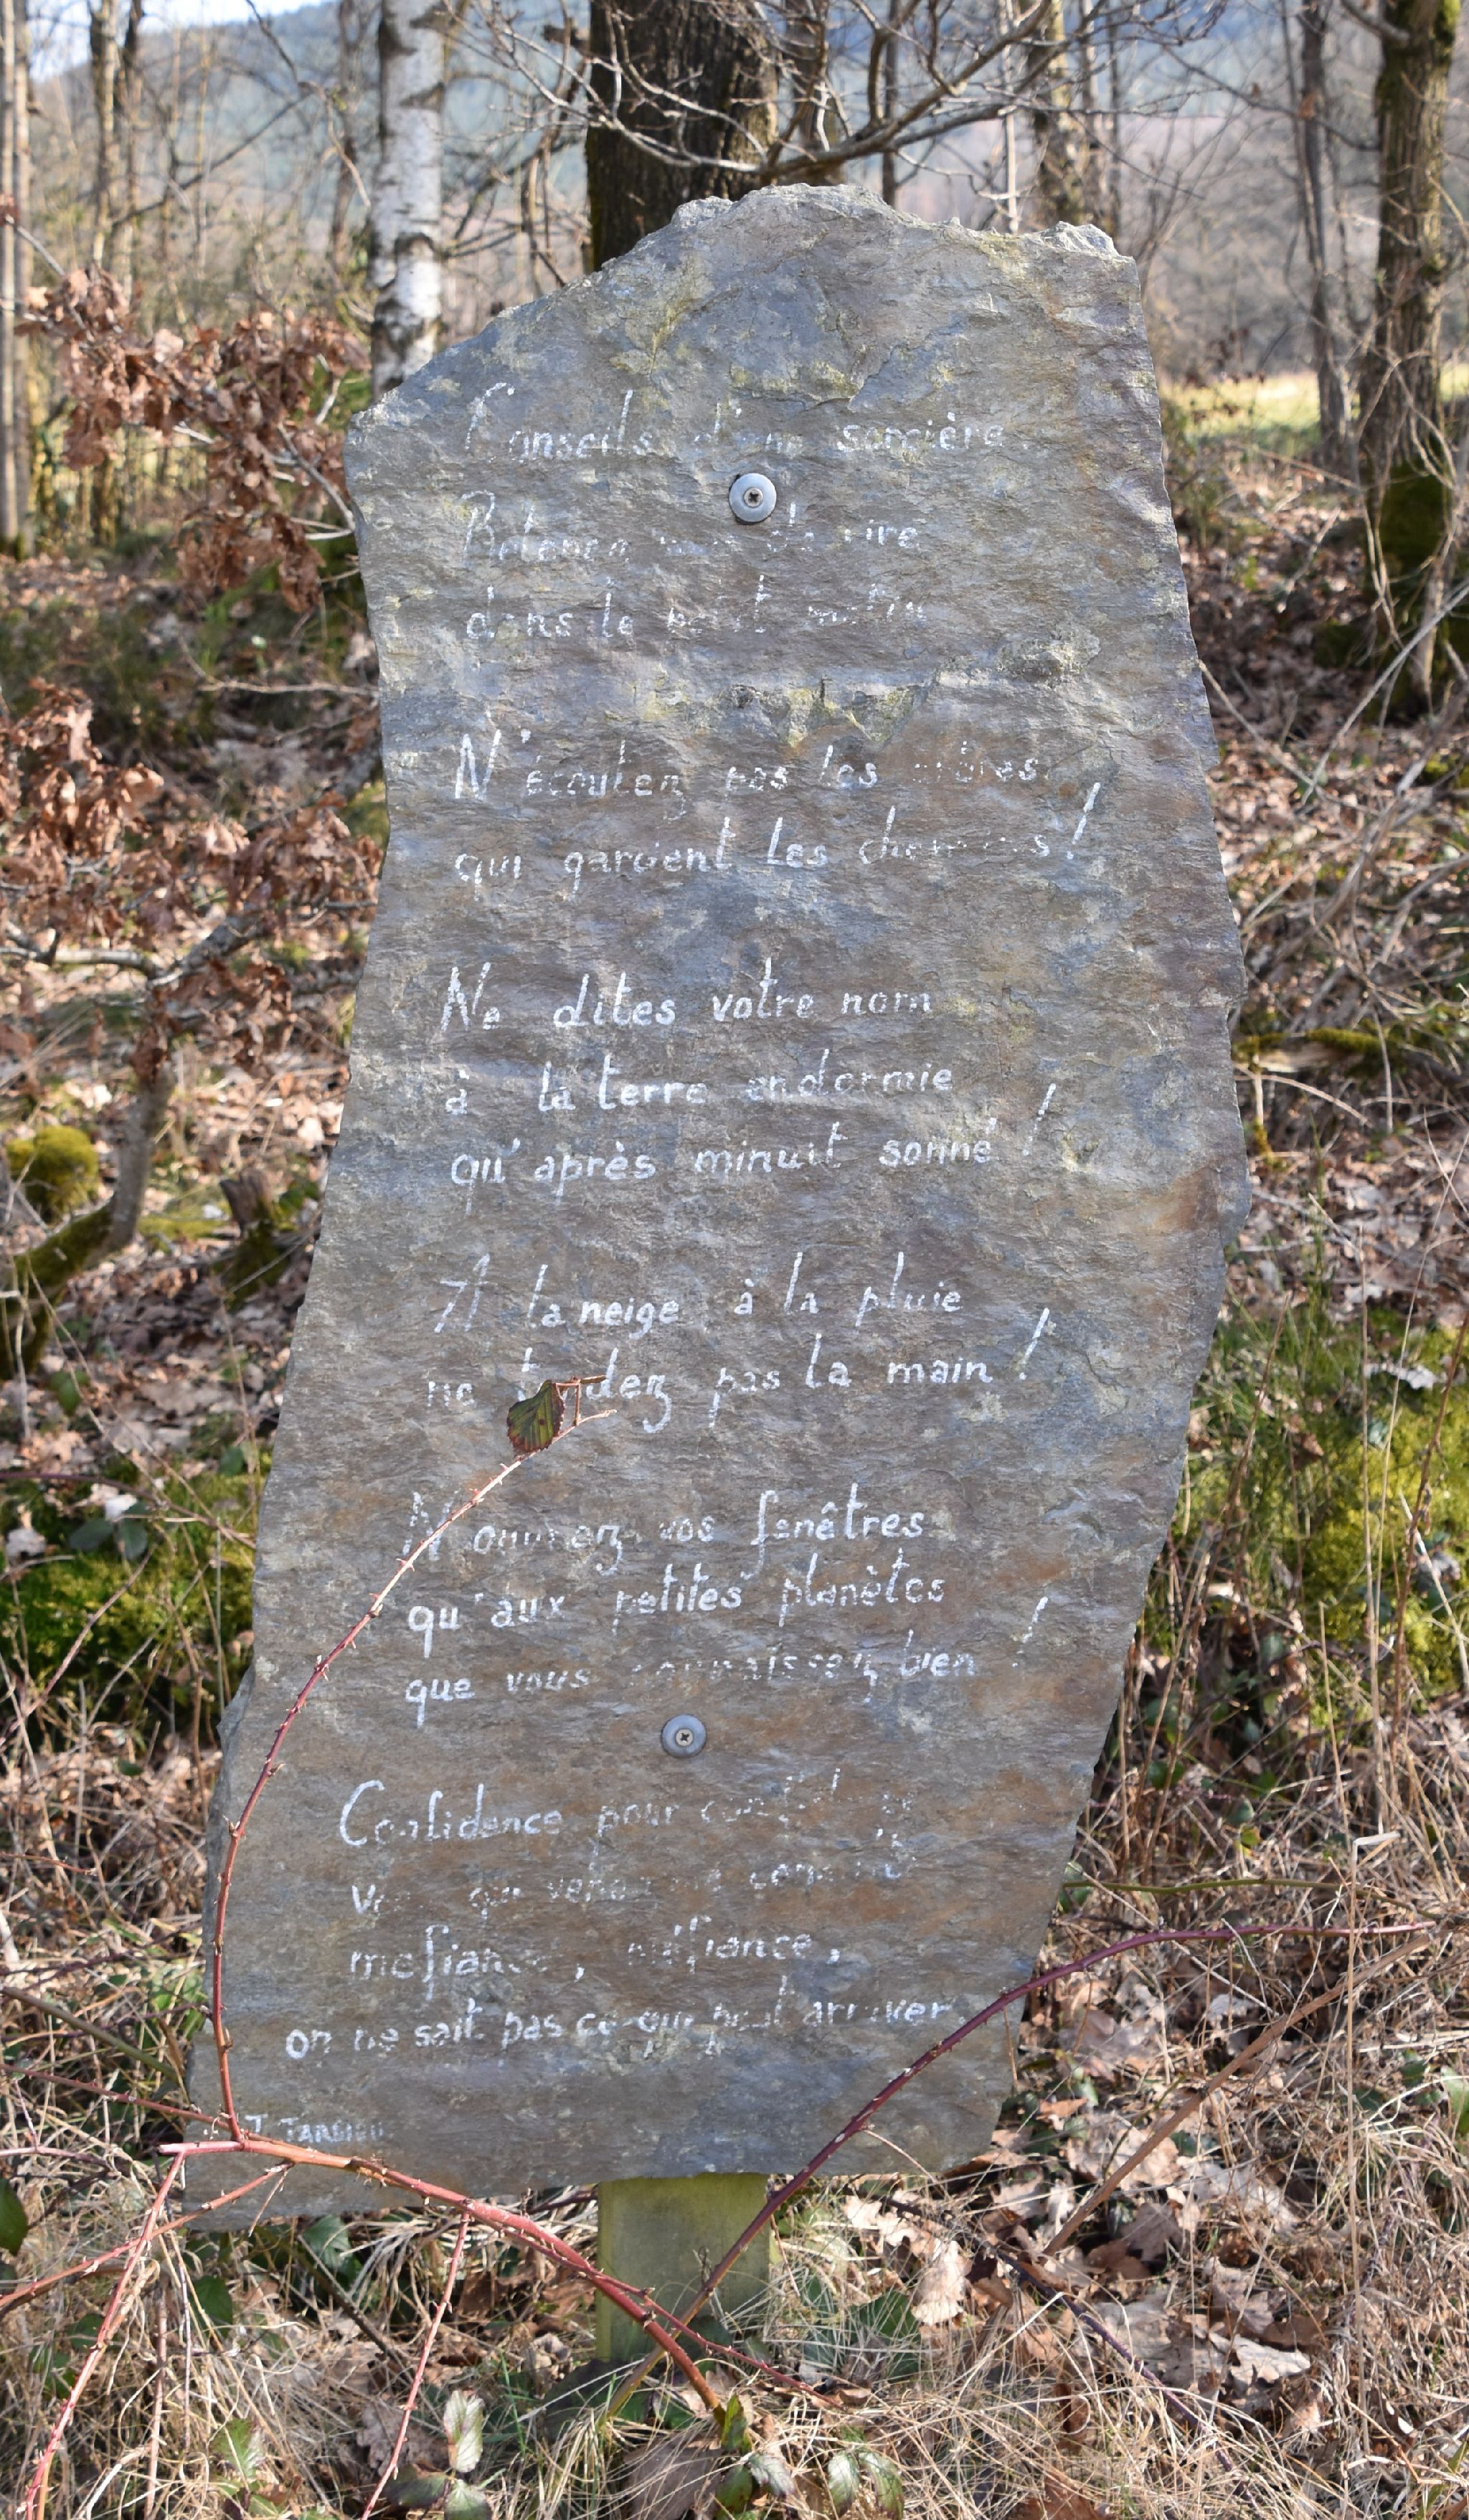 Conseils d'une sorcière
Retenez vous de rire
dans le petit matin
N'écoutez pas les arbres
qui gardent les chemins !
Ne dites votre nom
à la terre endormie
qu'après minuit sonné !
A la neige, à la pluie
ne tendez pas la main !
N'ouvrez vos fenêtres
qu'aux petites planètes
que vous connaissez bien !
Confidence pour confidence
Vous qui venez me consulter
méfiance, méfiance,
on ne sait pas ce qui peut arriver
J TARDIEU